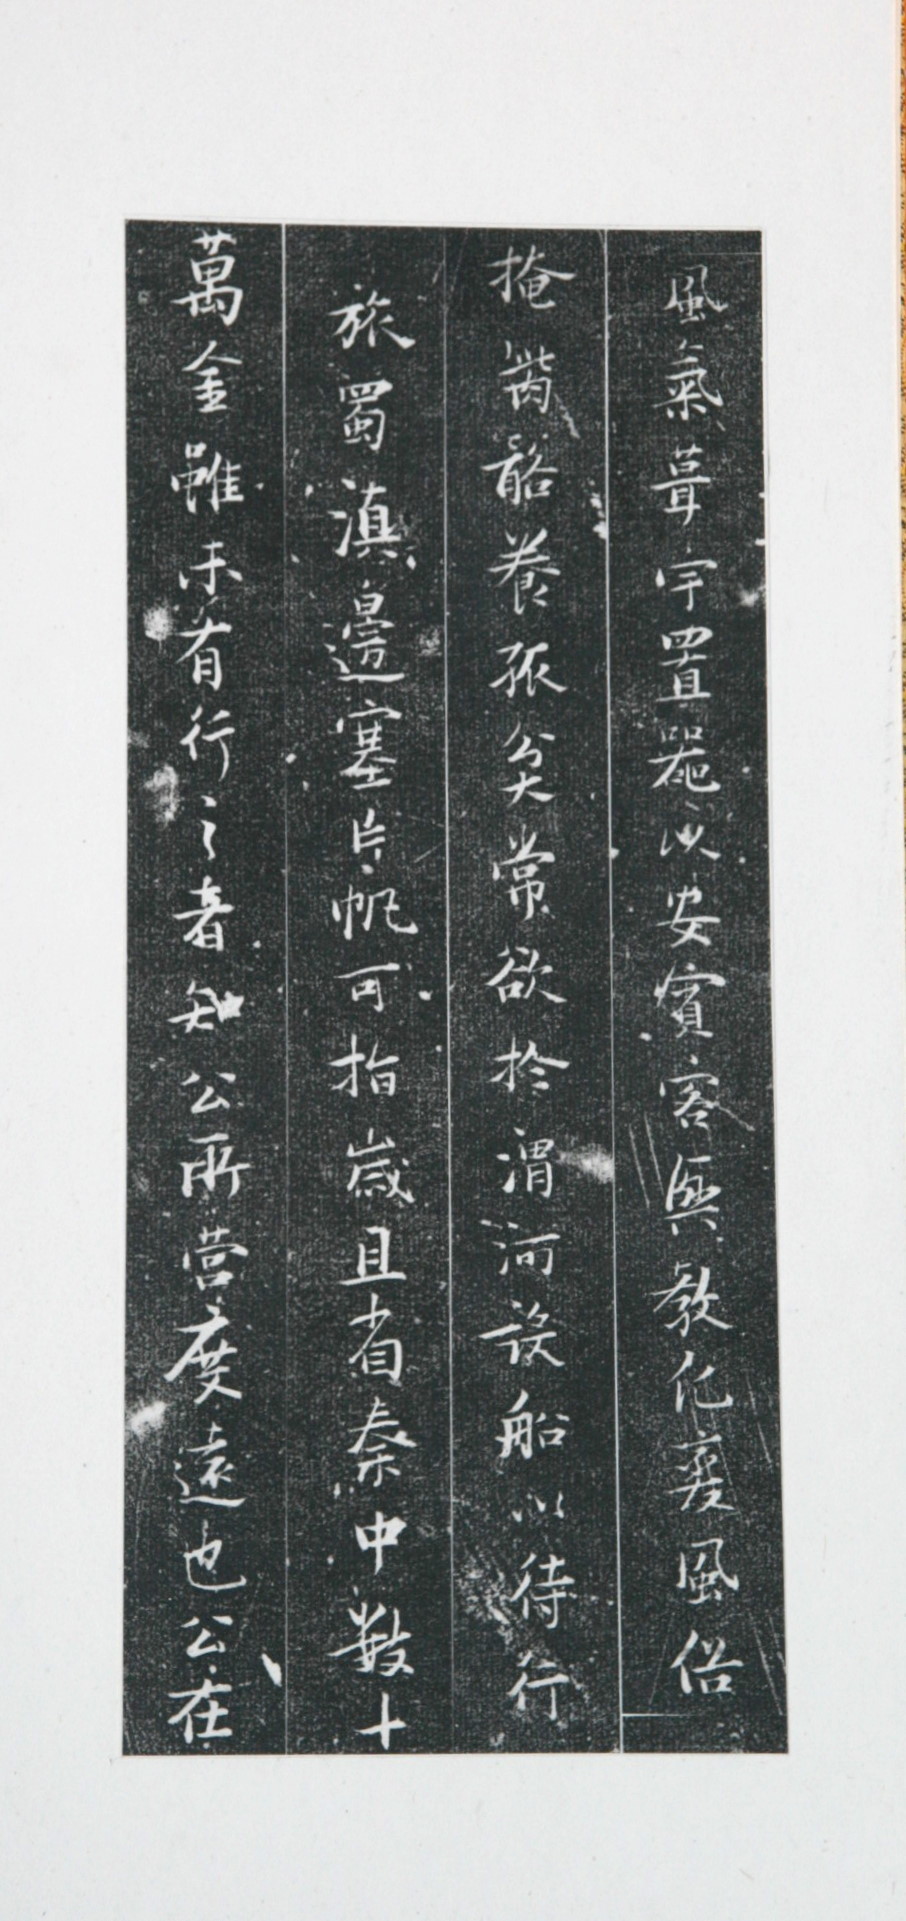 風氣葺宇置器以安賓客興教化變風俗
掩胔骼養孤㷀常欲於渭河設船以待行
旅蜀滇邊塞片帆可指歲且省秦中數十
萬金雖未有行之者知公所營度遠也公在